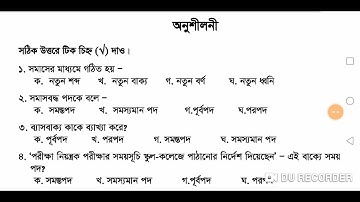 অনুশীলনী
সঠিক উত্তরে টিক চিহ্ন (√) দাও।
১. সমাসের মাধ্যমে গঠিত হয় –
ক. নতুন শব্দ খ. নতুন বাক্য গ. নতুন বর্ণ ঘ. নতুন ধ্বনি
২. সমাসবদ্ধ পদকে বলে –
ক. সমস্তপদ খ. সমস্যমান পদ গ.পূর্বপদ ঘ.পরপদ
৩. ব্যাসবাক্য কাকে ব্যাখ্যা করে?
ক. পূর্বপদ খ. পরপদ গ. সমস্তপদ ঘ. সমস্যমান পদ
৪. ‘পরীক্ষা নিয়ন্ত্রক পরীক্ষার সময়সূচি স্কুল-কলেজে পাঠানোর নির্দেশ দিয়েছেন’ – এই বাক্যে সমস্ত
পদ?
ক. সমস্তপদ খ. সমস্যমান পদ গ. পূর্বপদ ঘ.
DU RECORDER